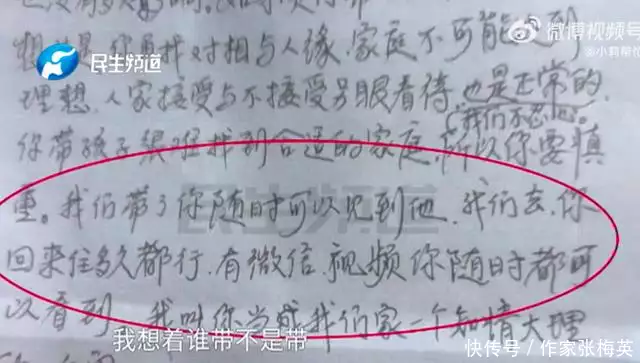 民生频道
微博视频号
@小莉帮忙
对相与人缘、家庭不可能达到
理想、人家接受与不接受另眼看待、也是正常的、
(我们不忍心。
你带孩子很难找到合适的家庭、所以你要慎
重。我们带了你随时可以见到他、我们去、你
民生频道
回来住多久都行、有微信、视频你随时都可
以看到、我叫你当成我们家一个知情大理
我想着谁带不是带
快传号/作家张梅英